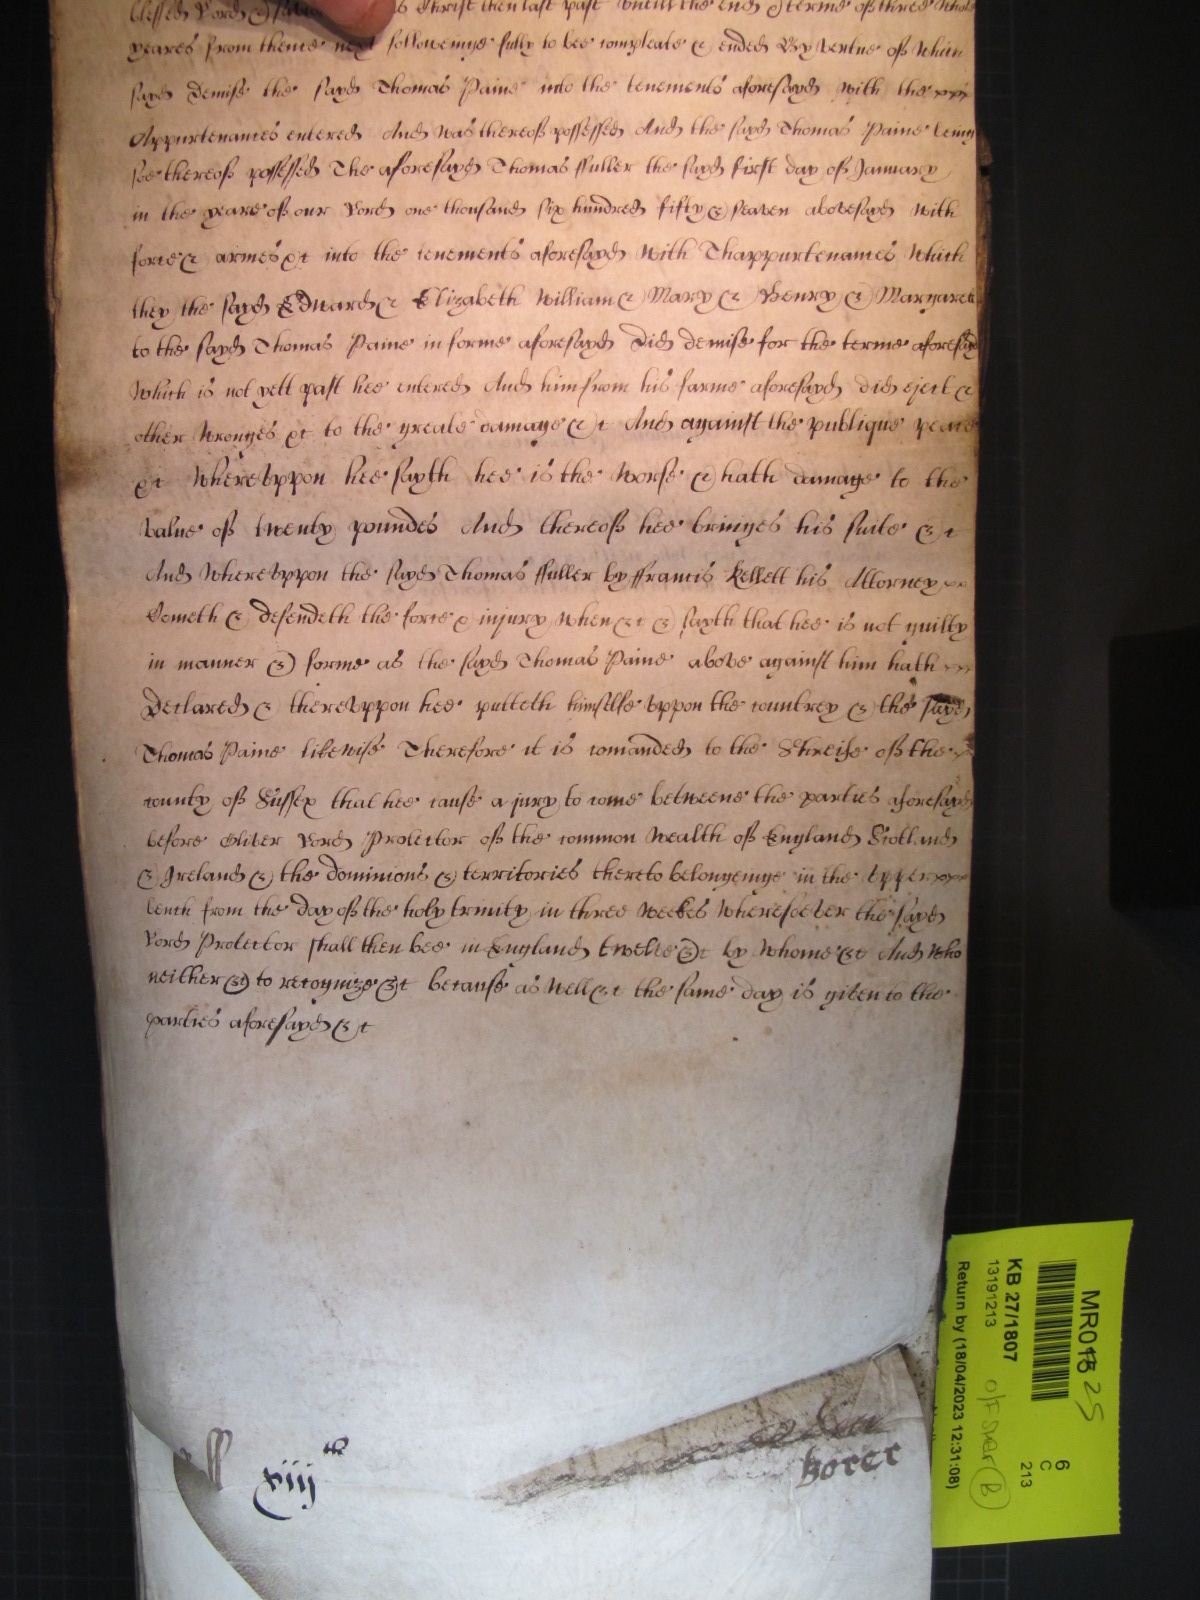 blessed Lord s Christ then last past untill the end & terme of three whole
yeares from thence next followeinge fully to bee compleate & ended By vertue of which
sayd demise the sayd Thomas Paine into the tenements aforesayd with the
Appurtenances entered And was thereof possessed And the sayd Thomas Paine being
soe thereof possessed The aforesayd Thomas ffuller the sayd first day of January
in the yeare of our Lord one thousand six hundred fifty & seaven abovesayd with
force & armes &c into the tenements aforesayd with Thappurtenances which
they the sayd Edward & Elizabeth William & Mary & Henry & Margarett
to the sayd Thomas Paine in forme aforesayd did demise for the terme aforesayd
which is not yett past hee entered And him from his farme aforesayd did eject &
other wronges &c to the greate damage &c And against the publique peace
&c whereuppon hee sayth hee is the worse & hath damage to the
value of twenty poundes And thereof hee bringes his suite &c
And whereuppon the sayd Thomas ffuller by ffrancis Kellett his Attorney
Cometh & defendeth the force & injury when &c & sayth that hee is not guilty
in manner & forme as the sayd Thomas Paine above against him hath
Declared & thereuppon hee putteth himselfe uppon the countrey & the sayd
Thomas Paine likewise Therefore it is comanded to the Shreife of the
county of Sussex that hee cause a jury to come betweene the parties aforesayd
before Oliver Lord Protector of the common wealth of England Scotland
& Ireland & the dominions & territories thereto belongeinge in the upper
bench from the day of the holy trinity in three weekes wheresoever the sayd
Lord Protector shall then bee in England twelve &c by whome &c And who
neither &c to recognize &c because as well &c the same day is given to the
parties aforesayd &c
xiij
MR018 25
KB 27/1807
13191213
Return by (18/04/2023 12:31:08)
6
C
213
B